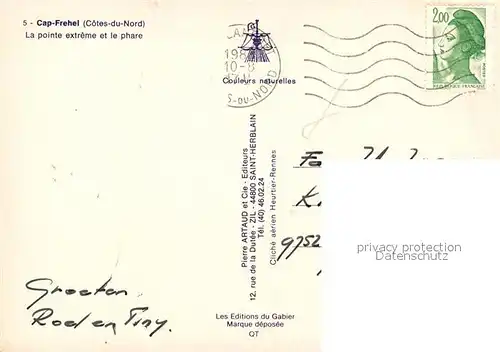 5 - Cap-Frehel (Côtes-du-Nord)
La pointe extrême et le phare
Couleurs naturelles
10-8
S-DU-NORD
2,00
REPUBLIQUE FRANÇAISE
Pierre ARTAUD et Cie - Editeurs
12, rue de la Dutée - ZIL - 44800 SAINT-HERBLAIN
Tél. (40) 46.02.24
Cliché aérien Heurtier-Rennes
K
9752
privacy protection
Datenschutz
Groeten
Roel en Tiny.
Les Editions du Gabier
Marque déposée
QT